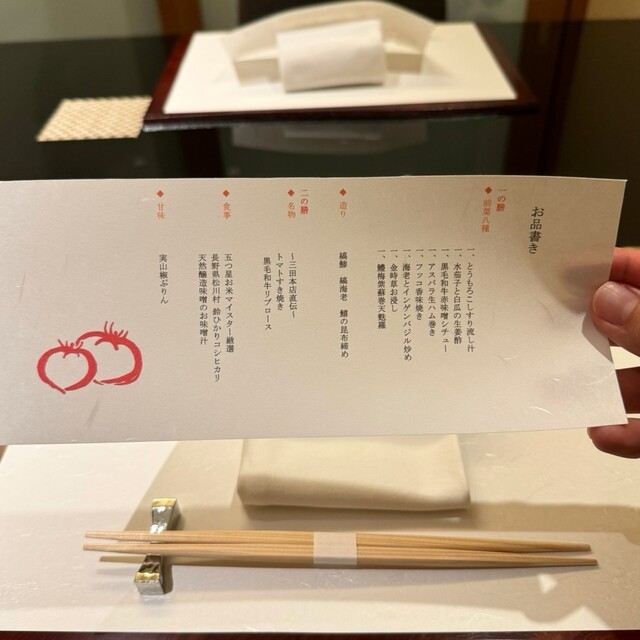 お品書き
一の膳
◆ 前菜八種
一、とうもろこしすり流し汁
一、水茄子と白瓜の生姜酢
一、黒毛和牛赤味噌シチュー
一、アスパラ生ハム巻き
一、フッコ香味焼き
一、海老とインゲンバジル炒め
一、金時草お浸し
一、鱧梅紫蘇巻天麩羅
◆ 造り
縞鯵 縞海老 鱚の昆布締め
二の膳
◆ 名物
〜三田本店直伝〜
トマトすき焼き
黒毛和牛リブロース
◆ 食事
五つ星お米マイスター厳選
長野県松川村 鈴ひかりコシヒカリ
天然醸造味噌のお味噌汁
◆ 甘味
実山椒ぷりん